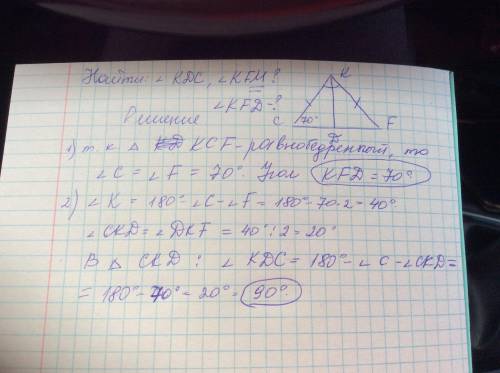 Найти: ∠KDC, ∠KFM?
∠KFD-?
K
C 70° F
Решение
1) т.к △ KCF-равнобедренный, то
∠C = ∠F = 70°. Угол KFD = 70°
2) ∠K = 180°-∠C-∠F = 180°-70·2 = 40°
∠CKD = ∠DKF = 40°:2 = 20°
В △ CKD: ∠KDC = 180°-∠C-∠CKD =
= 180°-70°-20° = 90°